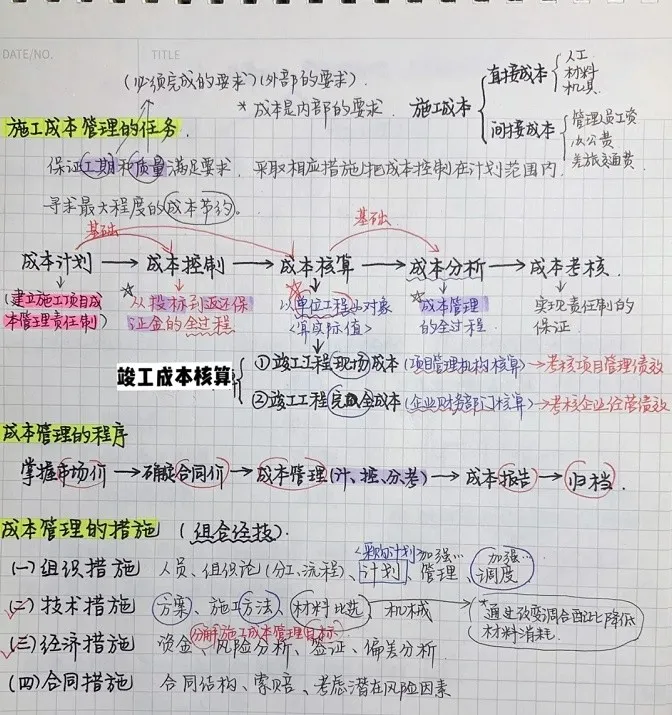 DATE/NO.
TITLE
(必须完成的要求)(外部的要求).
*成本是内部的要求.
施工成本
直接成本
人工
材料
机具
间接成本
管理人员工资
办公费
差旅交通费
施工成本管理的任务.
保证工期和质量满足要求. 采取相应措施把成本控制在计划范围内.
寻求最大程度的成本节约。
基础
基础
成本计划→成本控制→成本核算→成本分析→成本考核.
(建立施工项目成本管理责任制)
☆从投标到返还保证金的全过程
☆以单位工程为对象
<算实际值>
☆成本管理的全过程
实现责任制的保证.
竣工成本核算
①竣工工程现场成本(项目管理机构核算)→考核项目管理绩效
②竣工工程完全成本(企业财务部门核算)→考核企业经营绩效
成本管理的程序
掌握市场价→确定合同价→成本管理(计、控、分考)→成本报告→归档.
成本管理的措施(组合经技).
<采购计划>加强… 加强…
(一)组织措施 人员、组织论(分工、流程)、计划、管理、调度
(二)技术措施 方案、施工方法、材料比选、机械
*通过改变调合配比降低材料消耗.
分解施工成本管理目标
(三)经济措施 资金、风险分析、签证、偏差分析.
(四)合同措施 合同结构、索赔、考虑潜在风险因素